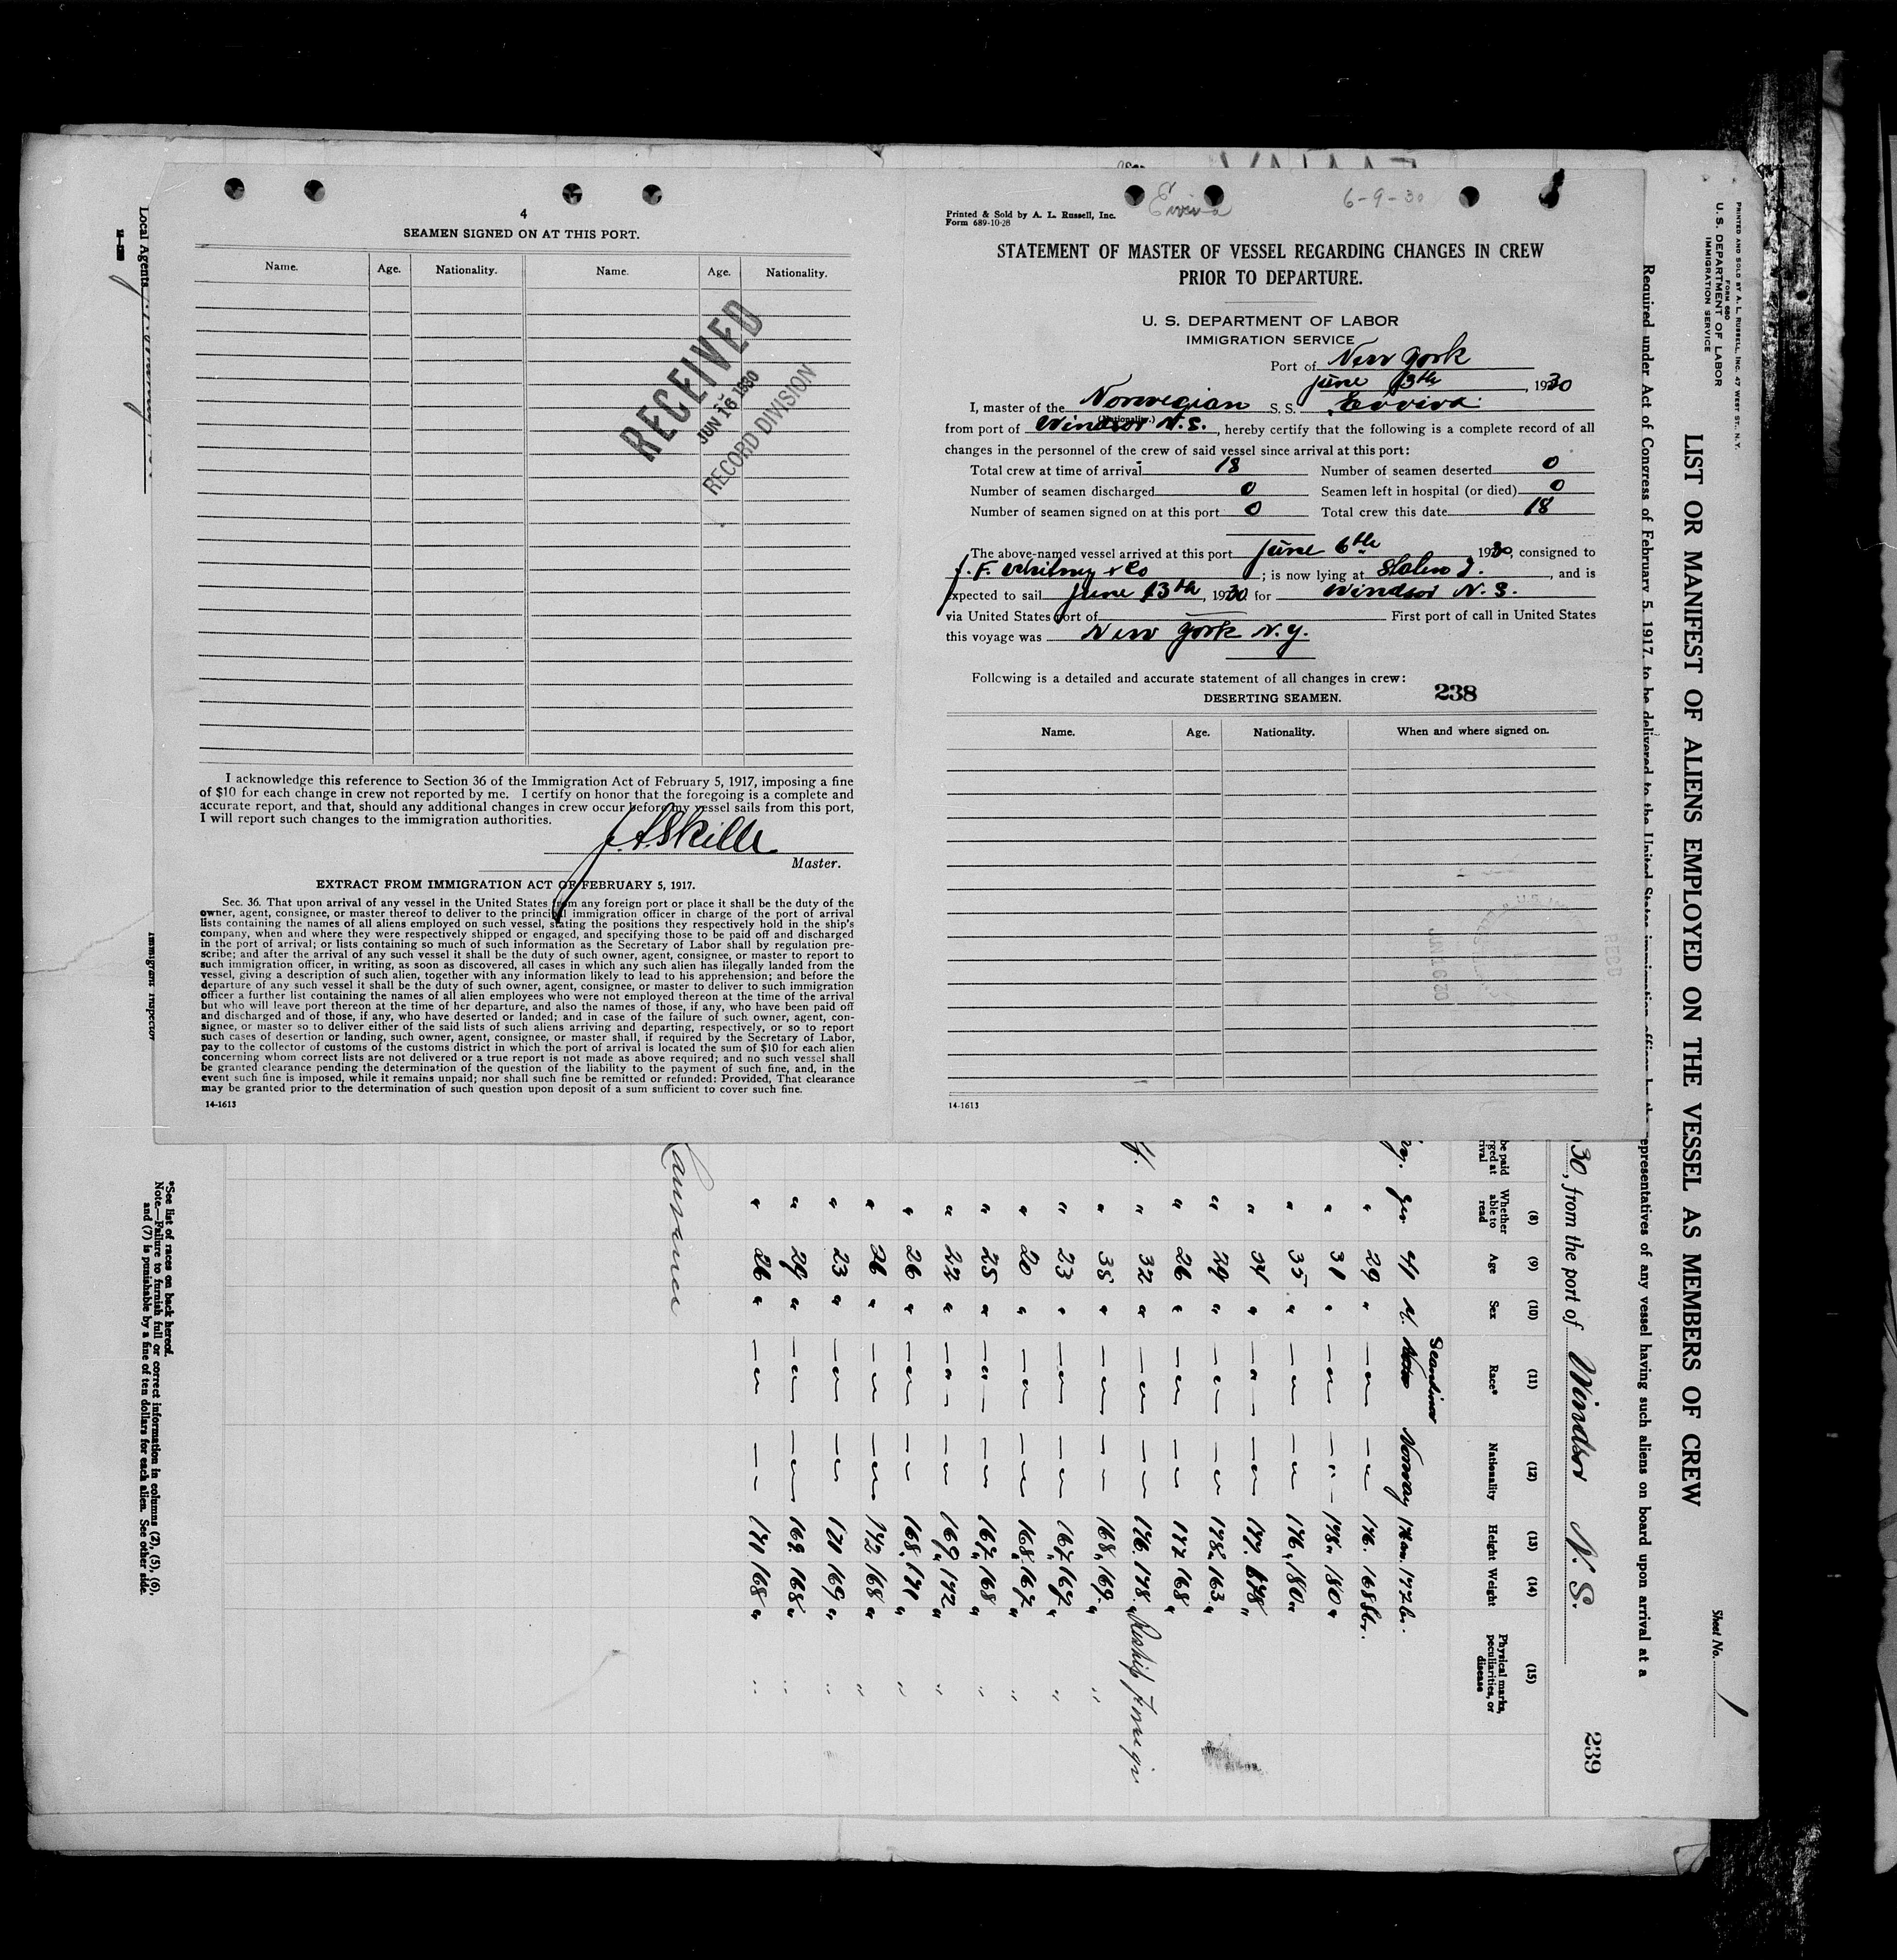 4
SEAMEN SIGNED ON AT THIS PORT.
Name. Age. Nationality. Name. Age. Nationality.
RECEIVED
JUN 16 1930
RECORD DIVISION
I acknowledge this reference to Section 36 of the Immigration Act of February 5, 1917, imposing a fine
of $10 for each change in crew not reported by me. I certify on honor that the foregoing is a complete and
accurate report, and that, should any additional changes in crew occur before my vessel sails from this port,
I will report such changes to the immigration authorities.
Master.
EXTRACT FROM IMMIGRATION ACT OF FEBRUARY 5, 1917.
Sec. 36. That upon arrival of any vessel in the United States from any foreign port or place it shall be the duty of the
owner, agent, consignee, or master thereof to deliver to the principal immigration officer in charge of the port of arrival
lists containing the names of all aliens employed on such vessel, stating the positions they respectively hold in the ship's
company, when and where they were respectively shipped or engaged, and specifying those to be paid off and discharged
in the port of arrival; or lists containing so much of such information as the Secretary of Labor shall by regulation pre-
scribe; and after the arrival of any such vessel it shall be the duty of such owner, agent, consignee, or master to report to
such immigration officer, in writing, as soon as discovered, all cases in which any such alien has illegally landed from the
vessel, giving a description of such alien, together with any information likely to lead to his apprehension; and before the
departure of any such vessel it shall be the duty of such owner, agent, consignee, or master to deliver to such immigration
officer a further list containing the names of all alien employees who were not employed thereon at the time of the arrival
but who will leave port thereon at the time of her departure, and also the names of those, if any, who have been paid off
and discharged and of those, if any, who have deserted or landed; and in case of the failure of such owner, agent, con-
signee, or master so to deliver either of the said lists of such aliens arriving and departing, respectively, or so to report
such cases of desertion or landing, such owner, agent, consignee, or master shall, if required by the Secretary of Labor,
pay to the collector of customs of the customs district in which the port of arrival is located the sum of $10 for each alien
concerning whom correct lists are not delivered or a true report is not made as above required; and no such vessel shall
be granted clearance pending the determination of the question of the liability to the payment of such fine, and, in the
event such fine is imposed, while it remains unpaid; nor shall such fine be remitted or refunded: Provided, That clearance
may be granted prior to the determination of such question upon deposit of a sum sufficient to cover such fine.
14-1613
Evviva 6-9-30
Printed & Sold by A. L. Russell, Inc.
Form 689-10-28
STATEMENT OF MASTER OF VESSEL REGARDING CHANGES IN CREW
PRIOR TO DEPARTURE.
U. S. DEPARTMENT OF LABOR
IMMIGRATION SERVICE
Port of New York
June 13th, 1930
I, master of the Norwegian S. S. Evviva
(Nationality.)
from port of Windsor N.S., hereby certify that the following is a complete record of all
changes in the personnel of the crew of said vessel since arrival at this port:
Total crew at time of arrival 18 Number of seamen deserted 0
Number of seamen discharged 0 Seamen left in hospital (or died) 0
Number of seamen signed on at this port 0 Total crew this date 18
The above-named vessel arrived at this port June 6th, 1930, consigned to
J. F. Whitney & Co; is now lying at Staten I., and is
expected to sail June 13th, 1930 for Windsor N. S.
via United States port of First port of call in United States
this voyage was New York N.Y.
Following is a detailed and accurate statement of all changes in crew:
DESERTING SEAMEN. 238
Name. Age. Nationality. When and where signed on.
14-1613
PRINTED AND SOLD BY A. L. RUSSELL, INC. 47 WEST ST. N. Y.
FORM 680
U. S. DEPARTMENT OF LABOR
IMMIGRATION SERVICE
Sheet No. 1
LIST OR MANIFEST OF ALIENS EMPLOYED ON THE VESSEL AS MEMBERS OF CREW
Required under Act of Congress of February 5, 1917, to be delivered to the United States immigration officer by the representatives of any vessel having such aliens on board upon arrival at a
239
30, from the port of Windsor N. S.
(8) (9) (10) (11) (12) (13) (14) (15)
Whether able to read Age Sex Race* Nationality Height Weight Physical marks, peculiarities, or disease
Scandinav
yes 41 M. Norway 172 lb.
" 29 " — " — — " — 176. 168 lbs.
" 31 " — " — — " — 178 " 180 "
" 35 " — " — — " — 176 " 180 "
" 34 " — " — — " — 177. 178 "
" 29 " — " — — " — 178 " 163 "
" 26 " — " — — " — 177 168 "
" 32 " — " — — " — 176. 178. " Reship Foreign
" 38 " — " — — " — 168 " 169. " "
" 23 " — " — — " — 167 " 167 " "
" 20 " — " — — " — 168 " 167 " "
" 25 " — " — — " — 167 " 168 " "
" 22 " — " — — " — 169 " 172 " "
" 26 " — " — — " — 168 " 171 " "
" 26 " — " — — " — 172 168 " "
" 23 " — " — — " — 171 169 " "
" 29 " — " — — " — 169. 168 " "
" 26 " — " — — — 171 168 " "
Local Agents
Immigrant Inspector
*See list of races on back hereof.
Note.—Failure to furnish full or correct information in columns (2), (5), (6),
and (7) is punishable by a fine of ten dollars for each alien. See other side.